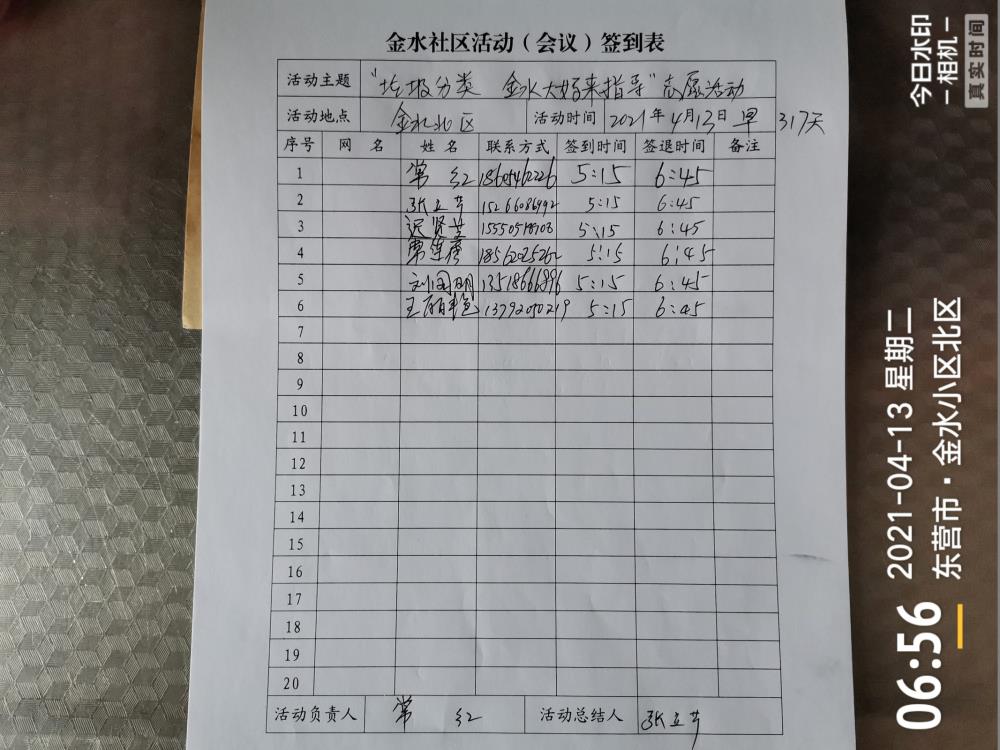 金水社区活动（会议）签到表
活动主题 "垃圾分类 金水大妈来指导"志愿活动
活动地点 金水北区 活动时间 2021年4月13日 早 317天
序号 网 名 姓 名 联系方式 签到时间 签退时间 备注
1 常 红 5:15 6:45
2 张立芹 15266086992 5:15 6:45
3 迟贤芸 5:15 6:45
4 5:15 6:45
5 刘国明 13518666896 5:15 6:45
6 王丽艳 13792050219 5:15 6:45
7
8
9
10
11
12
13
14
15
16
17
18
19
20
活动负责人 常 红 活动总结人 张立芹
今日水印
-相机-
真实时间
06:56
2021-04-13 星期二
东营市·金水小区北区